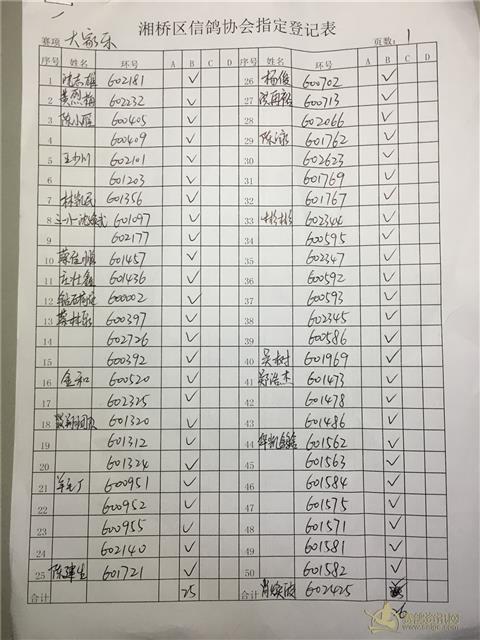 湘桥区信鸽协会指定登记表
赛项 大家乐 页数: 1
序号 姓名 环号 A B C D 序号 姓名 环号 A B C D
1 沈志雄 602181 ✓ 26 杨俊 600702 ✓
2 黄烈梅 602232 ✓ 27 600713 ✓
3 陈小雁 600405 ✓ 28 602066 ✓
4 600409 ✓ 29 陈泳 601762 ✓
5 王少川 602101 ✓ 30 602623 ✓
6 601203 ✓ 31 601769 ✓
7 林凯民 601356 ✓ 32 601767 ✓
8 601097 ✓ 33 彬彬 602344 ✓
9 602177 ✓ 34 600595 ✓
10 601457 ✓ 35 602347 ✓
11 庄壮鑫 601436 ✓ 36 600592 ✓
12 600002 ✓ 37 600593 ✓
13 600397 ✓ 38 602345 ✓
14 602726 ✓ 39 600586 ✓
15 600392 ✓ 40 吴树 601969 ✓
16 金和 600520 ✓ 41 郑浩杰 601473 ✓
17 602325 ✓ 42 601478 ✓
18 601320 ✓ 43 601486 ✓
19 601312 ✓ 44 601562 ✓
20 601324 ✓ 45 601563 ✓
21 600951 ✓ 46 601584 ✓
22 600952 ✓ 47 601575 ✓
23 600955 ✓ 48 601571 ✓
24 602140 ✓ 49 601581 ✓
25 陈建生 601721 ✓ 50 601582 ✓
合计 25 合计 602425
26